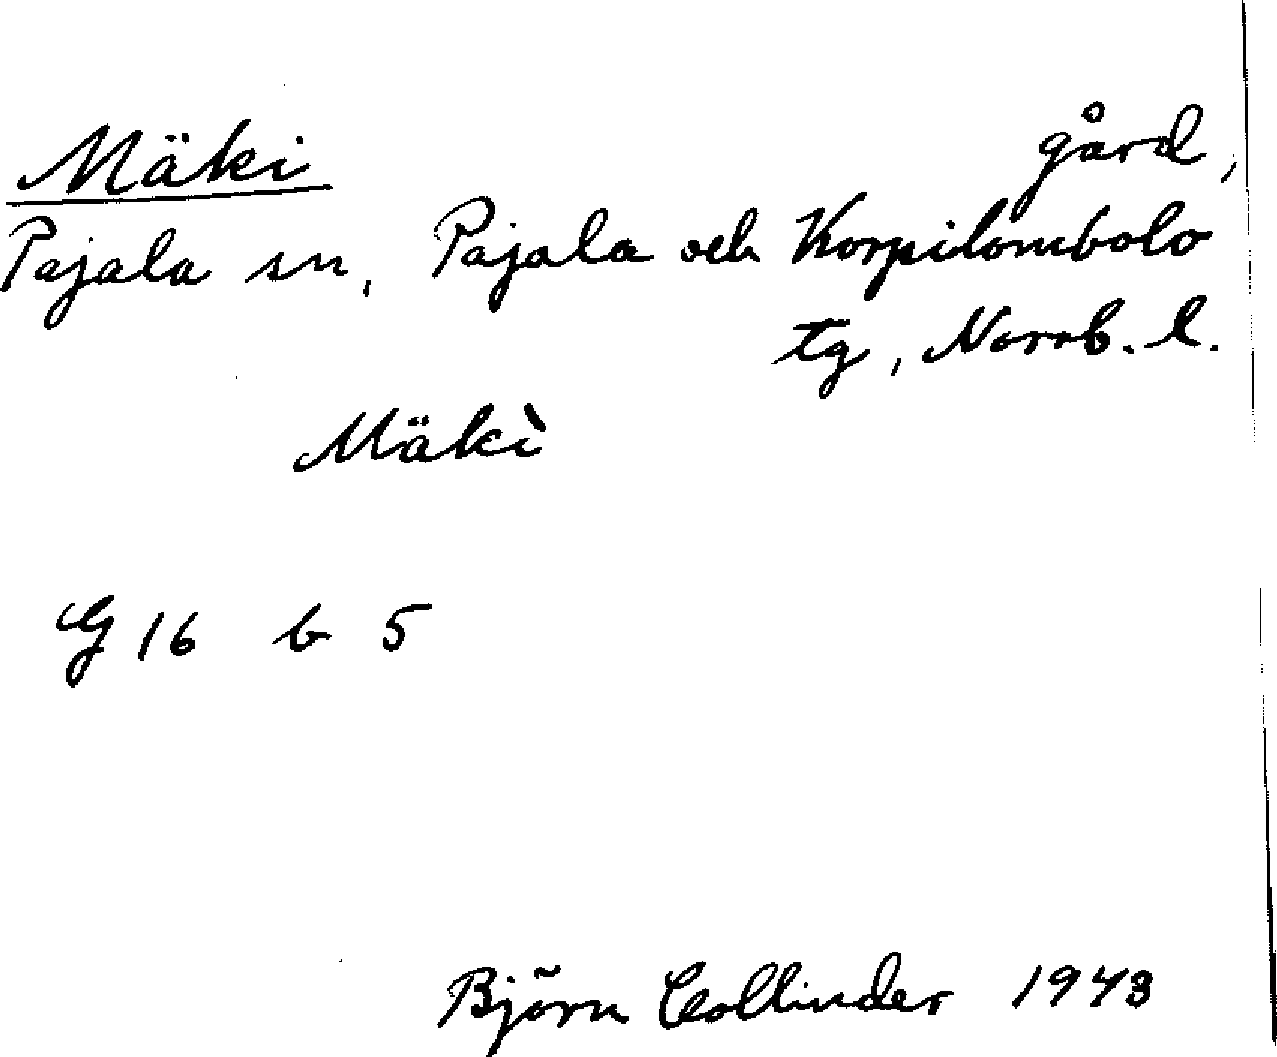 Mäki gård,
Pajala sn, Pajala och Korpilombolo
tg, Norrb. l.
Mäkì
G 16 b 5
Björn Collinder 1943